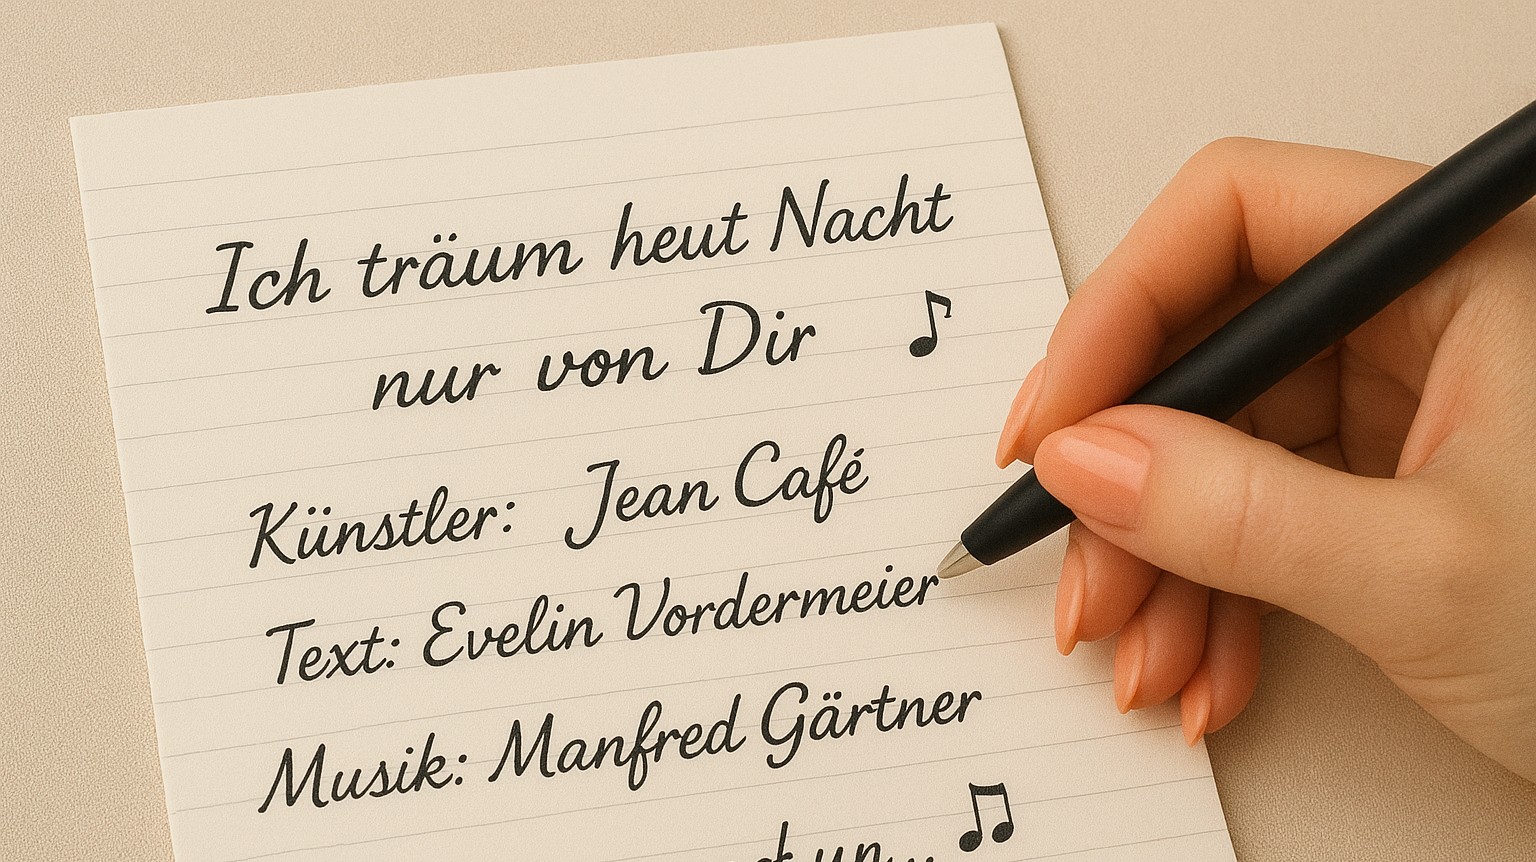 Ich träum heut Nacht
nur von Dir
Künstler: Jean Café
Text: Evelin Vordermeier
Musik: Manfred Gärtner